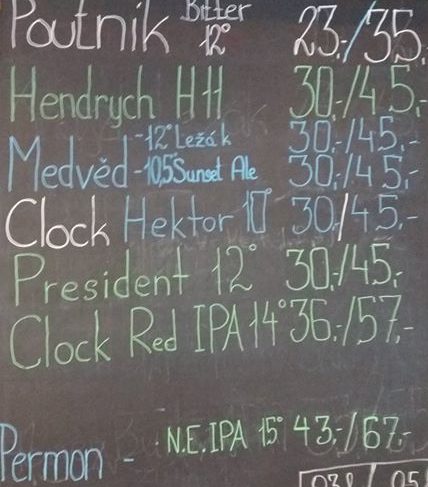 Poutnik Bitter 12° 23.-/35.-
Hendrych H11 30.-/45.-
Medvěd -12° Ležák 30.-/45.-
-10,5° Sunset Ale 30.-/45.-
Clock Hektor 10° 30/45.-
President 12° 30.-/45.-
Clock Red IPA 14° 36.-/57.-
Permon - N.E.IPA 15° 43.-/67.-